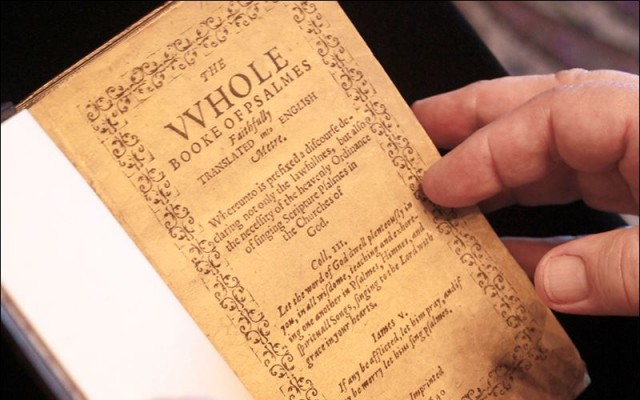 THE
VVHOLE
BOOKE OF PSALMES
Faithfully
TRANSLATED into ENGLISH
Metre.
Whereunto is prefixed a discourse de-
claring not only the lawfullnes, but also
the necessity of the heavenly Ordinance
of singing Scripture Psalmes in
the Churches of
God.
Coll. III.
Let the word of God dwell plenteously in
you, in all wisdome, teaching and exhort-
ing one another in Psalmes, Himnes, and
spirituall Songs, singing to the Lord with
grace in your hearts.
Iames V.
If any be afflicted, let him pray, and if
any be merry let him sing psalmes.
Imprinted